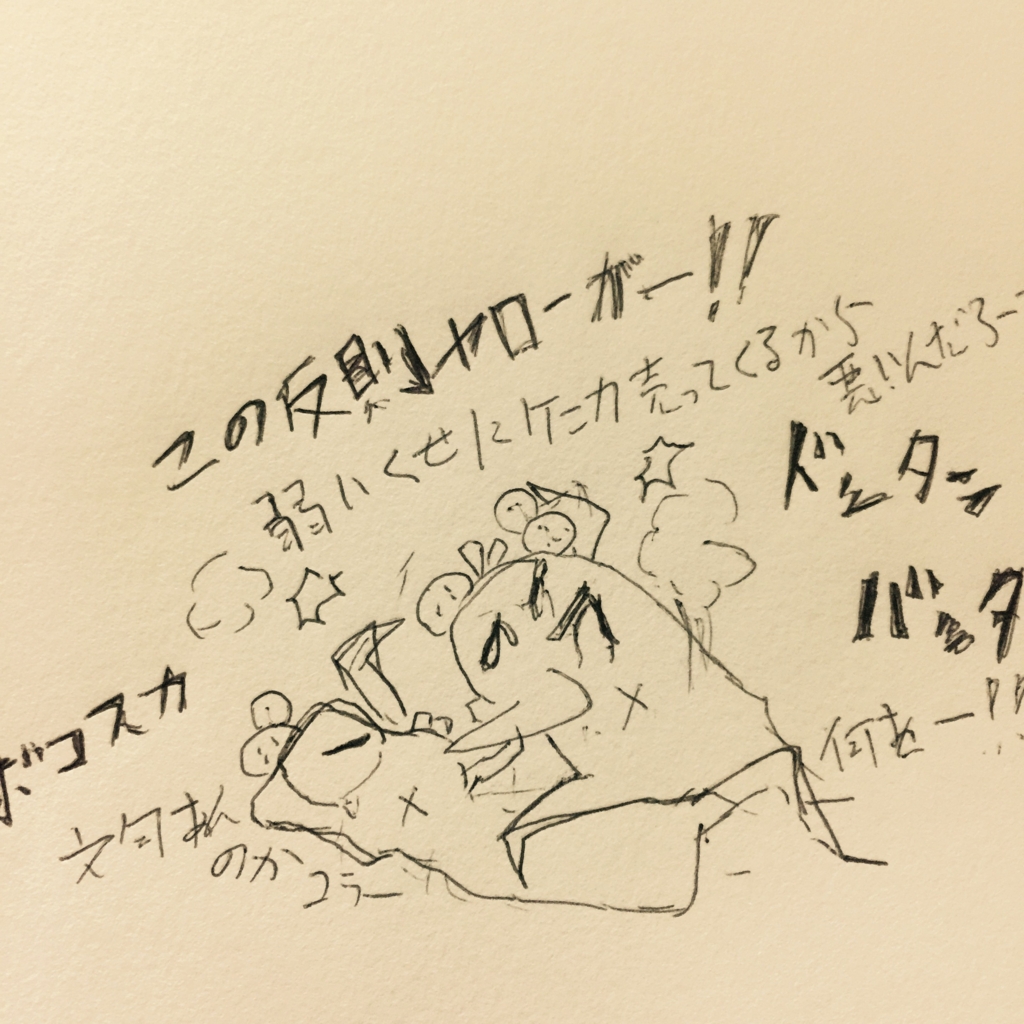 この反則ヤローがー!!
弱いくせにケンカ売ってくるから
悪いんだろー
ドッタン
バッタ
何をー!!
ボコスカ
文句あん
のか
コラー